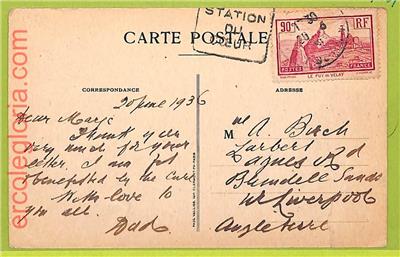 STATION
DU
CŒUR
90c RF
POSTES FRANCE
LE PUY EN VELAY
CARTE POSTALE
CORRESPONDANCE
ADRESSE
20 June 1936
Dear Marj:
Thank you
very much for your
letter. I am just
benefitted by the cure
With love to
you all.
Dad
M A. Birch
Larbert
Agnes Rd
Blundell Sands
nr Liverpool
Angleterre
ercolegloria.com